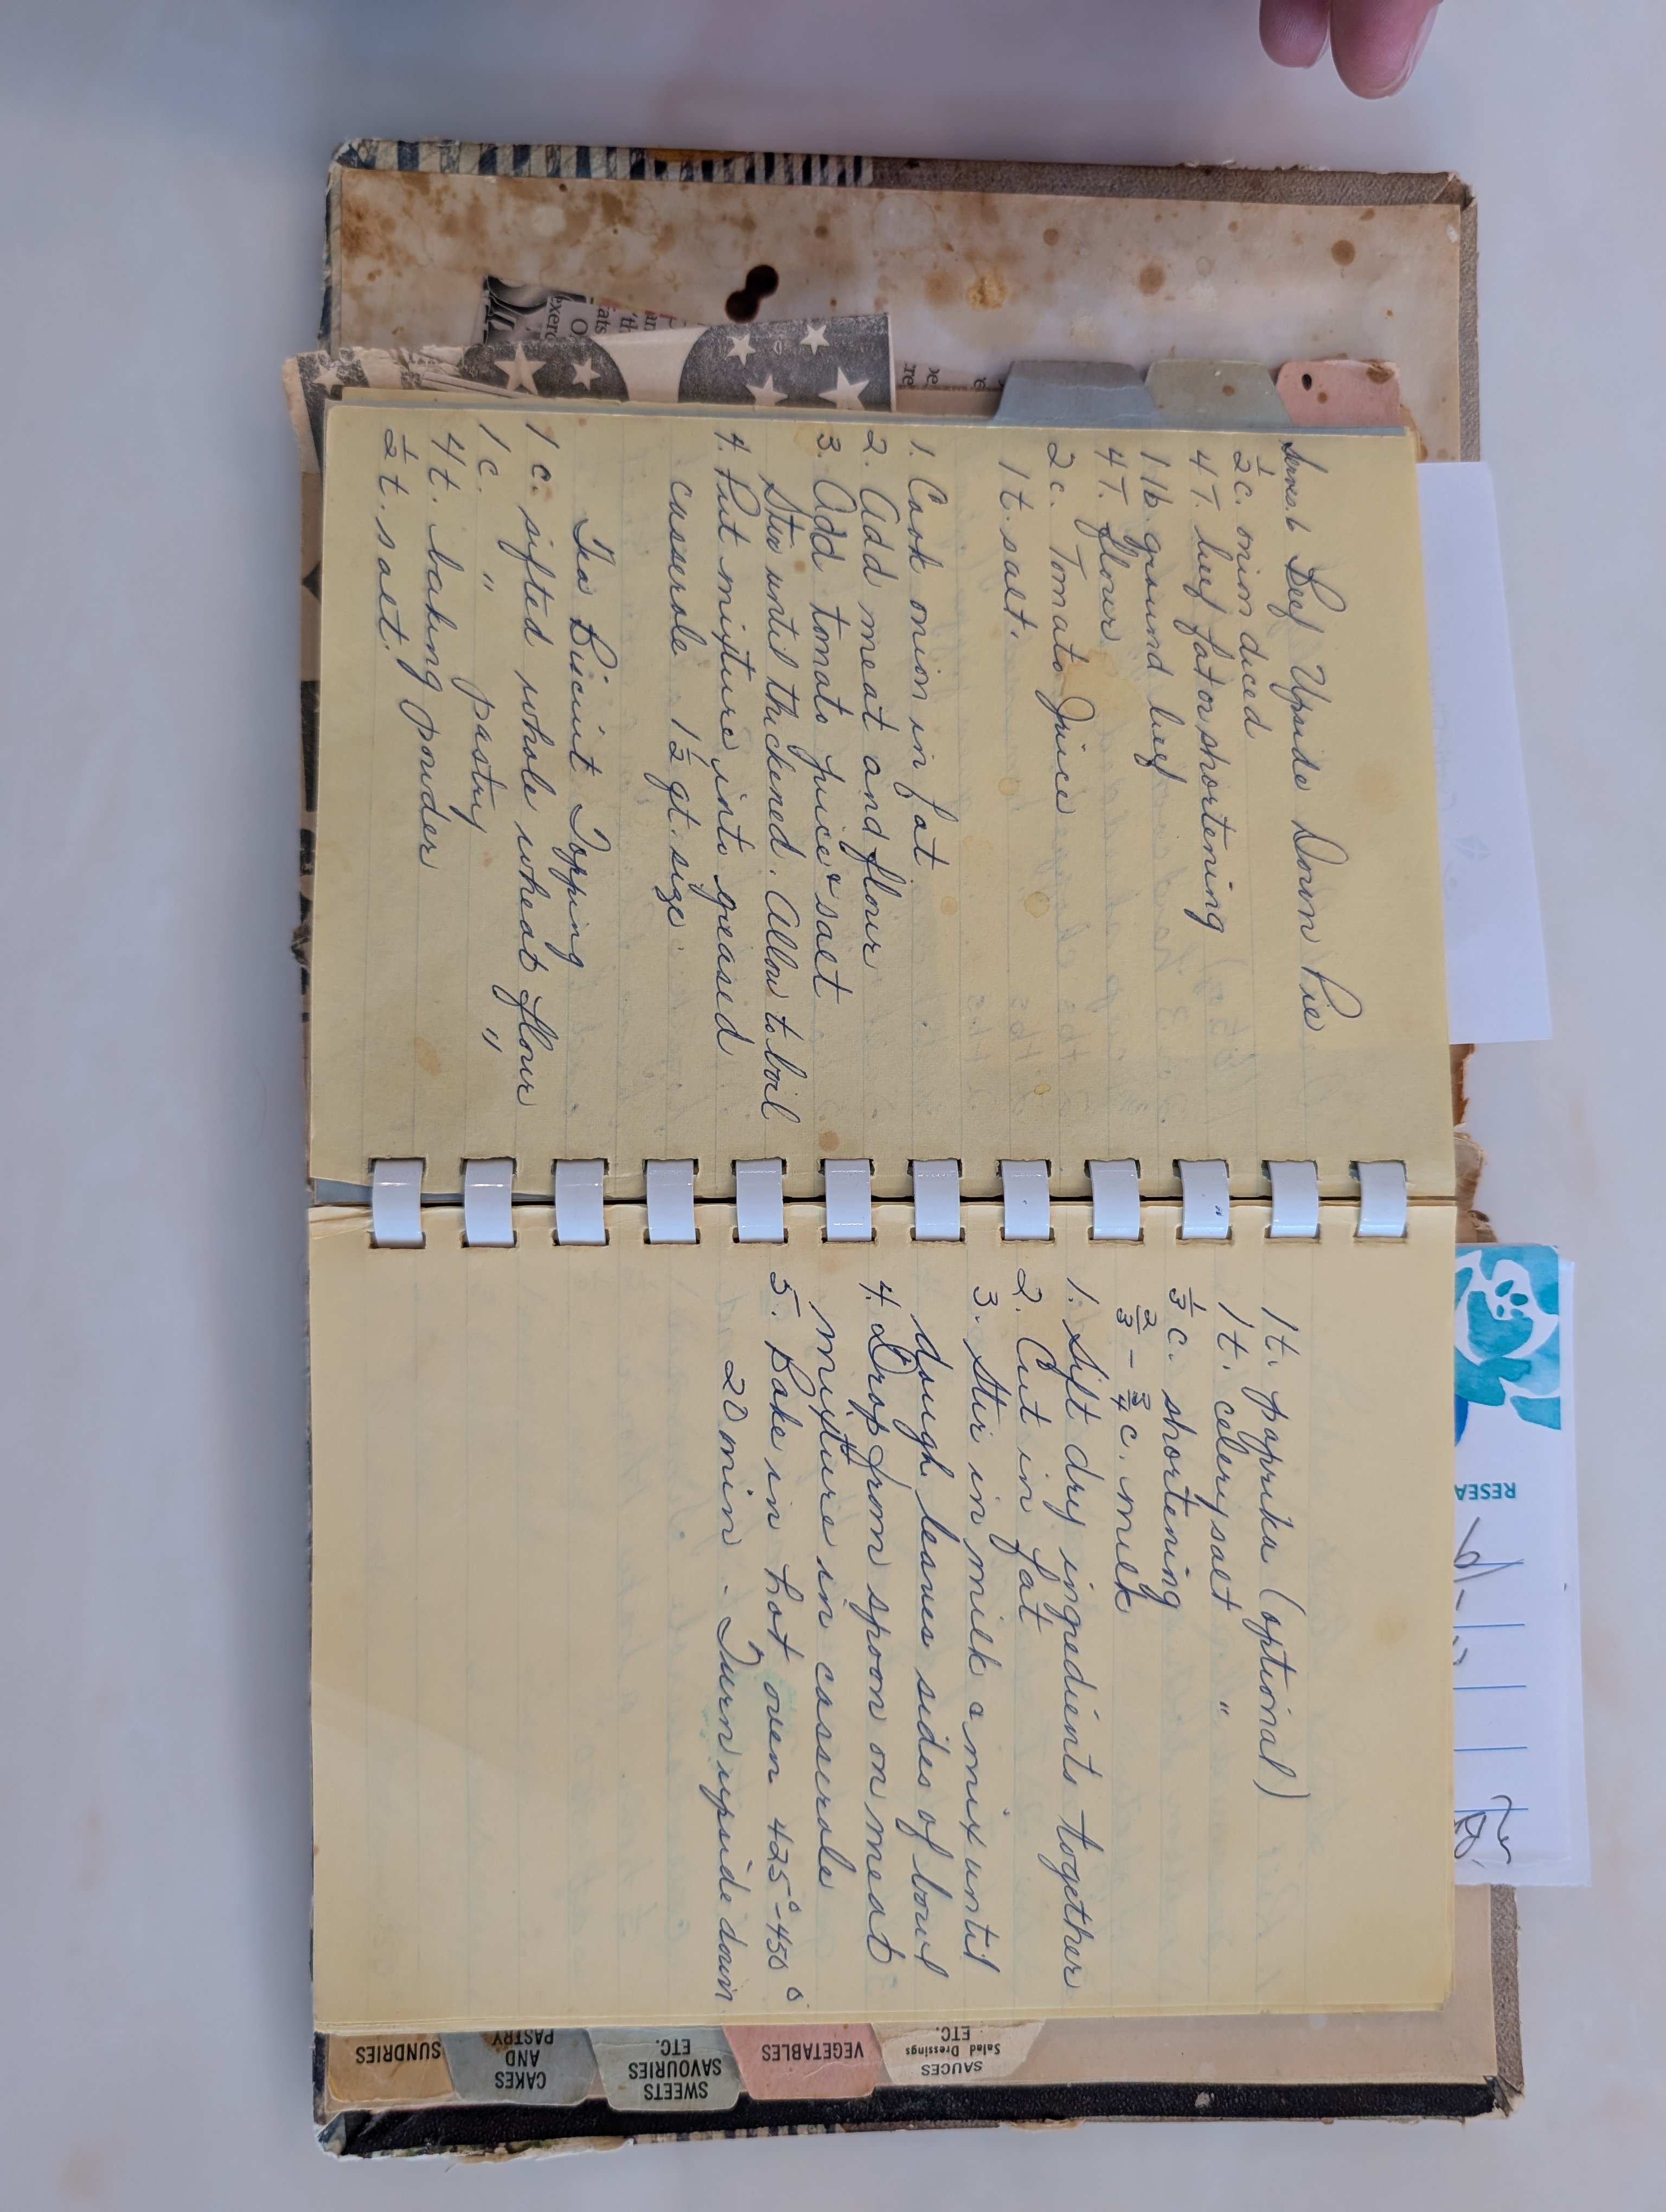 Serves 6 Beef Upside Down Pie
½ c. onion diced
4 T. beef fat or shortening
1 lb. ground beef
4 T. flour
2 c. Tomato Juice
1 t. salt.
1. Cook onion in fat
2. Add meat and flour
3. Add tomato juice & salt
Stir until thickened. Allow to boil
4. Put mixture into greased
casserole 1½ qt. size.
Tea Biscuit Topping
1 c. sifted whole wheat flour
1 c. " pastry "
4 t. baking powder
½ t. salt.
1 t. paprika (optional)
1 t. celery salt "
⅓ c. shortening
⅔ - ¾ c. milk
1. Sift dry ingredients together
2. Cut in fat
3. Stir in milk & mix until
dough leaves sides of bowl
4. Drop from spoon on meat
mixture in casserole
5. Bake in hot oven 425° - 450°
20 min - Turn upside down
SAUCES
Salad Dressings
ETC.
VEGETABLES
SWEETS
SAVOURIES
ETC.
CAKES
AND
PASTRY
SUNDRIES
RESEA